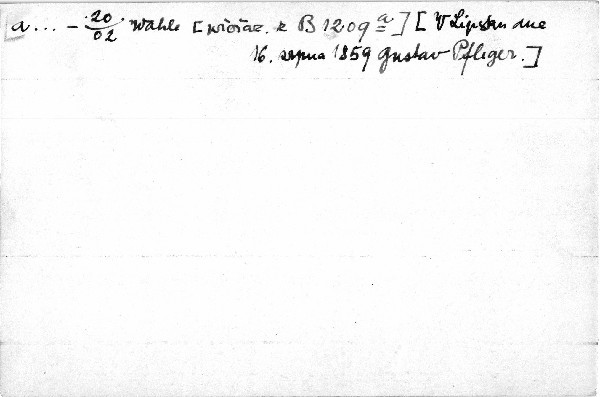 a... - 20/02 Wahle [přiváz. k B 1209 a] [V Lipsku dne
16. srpna 1859 Gustav Pfleger.]